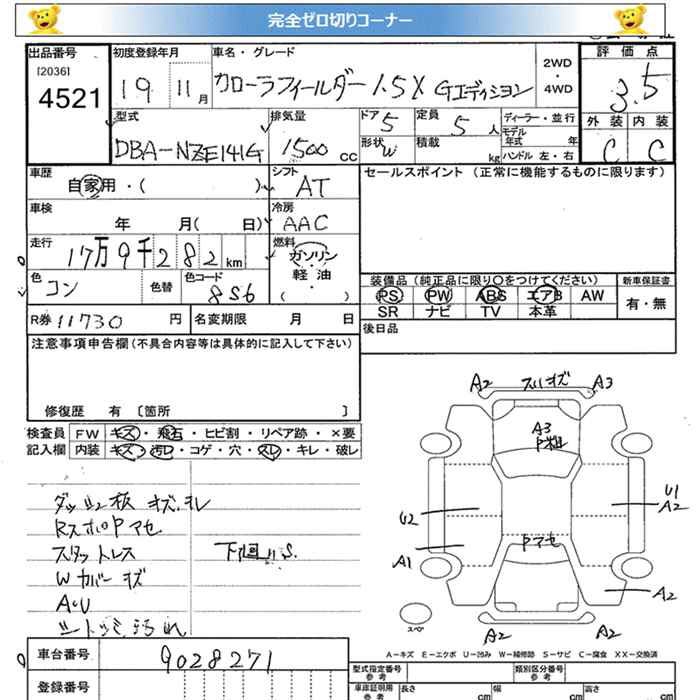 完全ゼロ切りコーナー
出品番号 初度登録年月 車名・グレード 2WD・4WD 評価点
[2036]
4521
19 11月 カローラフィールダー 1.5X Gエディション 3.5
型式 排気量 ドア 5 定員 5人 ディーラー・並行 外装 内装
モデル年式 年
DBA-NZE141G 1500cc 形状 W 積載 kg ハンドル 左・右 C C
車歴 シフト セールスポイント (正常に機能するものに限ります)
自家用・( ) AT
車検 冷房
年 月( 日) AAC
走行 燃料
17万9千282km ガソリン・軽油・( )
色 色替 色コード 装備品 (純正品に限り○をつけてください) 新車保証書
コン 8S6 PS PW ABS エアB AW 有・無
SR ナビ TV 本革
R券 11730円 名変期限 月 日 後日品
注意事項申告欄 (不具合内容等は具体的に記入して下さい)
修復歴 有 [箇所 ]
検査員 FW キズ・飛石・ヒビ割・リペア跡・×要
記入欄 内装 キズ・汚レ・コゲ・穴・スレ・キレ・破レ
ダッシュ板 キズ、
RスポPアセ
スタットレス 下廻りS
Wカバーキズ
シートシミ汚れ
A2 スリキズ A3
A3
P粗
U1
A2
U2
A1 Pアセ
A2
スペ
A2 A2
A−キズ E−エクボ U−凹み W−補修跡 S−サビ C−腐食 XX−交換済
車台番号 9028271
登録番号
型式指定番号 参考 類別区分番号 参考
車庫証明用 参考 長さ cm 幅 cm 高さ cm